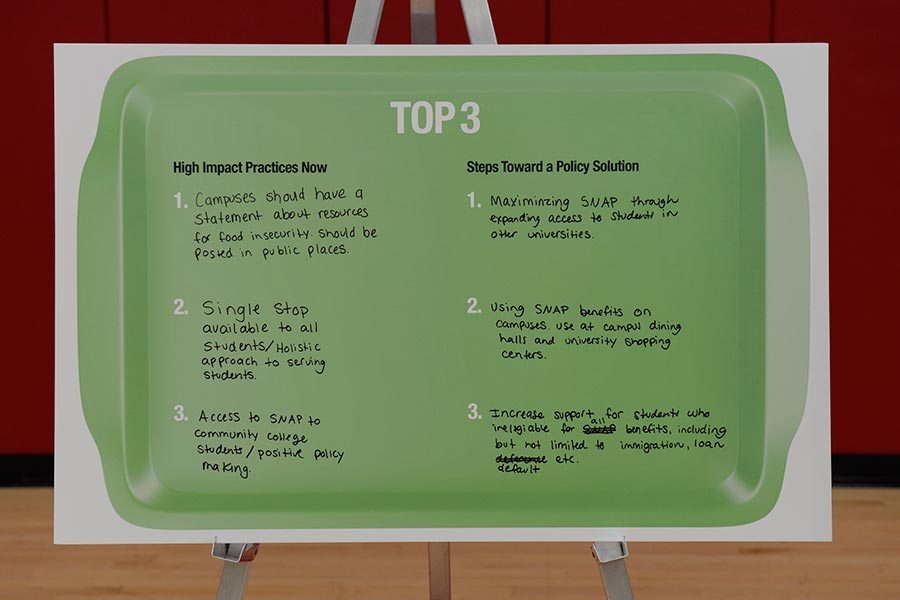 TOP 3
High Impact Practices Now
1. Campuses should have a
statement about resources
for food insecurity. Should be
posted in public places.
2. Single Stop
available to all
students/Holistic
approach to serving
students.
3. Access to SNAP to
community college
students/positive policy
making.
Steps Toward a Policy Solution
1. Maximinzing SNAP through
expanding access to students in
other universities.
2. Using SNAP benefits on
campuses. use at campus dining
halls and university shopping
centers.
3. Increase support for students who
all
ineligiable for benefits, including
but not limited to immigration, loan
etc.
default